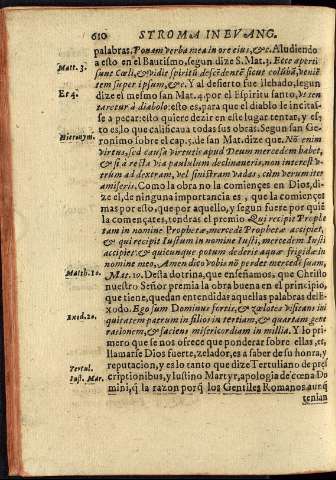 610 STROMA IN EVANG.
palabras. Ponam verba mea in ore eius, &c. Aludiendo
a esto en el Bautismo, segun dize S. Mat. 3. Ecce aperti
Matt. 3.
sunt Cœli, & vidit spiritũ descẽdentẽ sicut colũbã, veniẽ
tem super ipsum, &c. Y al desierto fue lleuado, segun
Et 4.
dize el mesmo san Mat. 4. por el Espiritu santo, Vt ten
taretur à diabolo: esto es, para que el diablo le incitas-
se a pecar: esto quiere dezir en este lugar tentar, y es,
to es, lo que calificaua todas sus obras. Segun san Ge-
Hieronymi.
ronimo sobre el cap. 5. de san Mat. dize que. Nõ enim
virtus, sed causa virtutis apud Deum mercedem habet,
& si à recta via paululum declinaueris, non interest v-
trum ad dextram, vel sinistram vadas, cùm verum iter
amiseris. Como la obra no la comiençes en Dios, di-
ze el, de ninguna importancia es, que la comiençes
mas por esto, que por aquello, y segun fuere por quiẽ
la començates, tendras el premio Qui recipit Prophe
tam in nomine Prophetæ, mercedẽ Prophetæ accipiet,
& qui recipit Iustum in nomine Iusti, mercedem Iusti
accipiet: & quicunque potum dederit aquæ frigidæ in
nomine meo, Amen dico vobis nõ perdet mercedẽ suam,
Matth. 10.
Mat. 10. Desta dotrina, que enseñamos, que Christo
nuestro Señor premia la obra buena en el principio,
que tiene, quedan entendidar aquellas palabras del E-
Exod. 20.
xodo. Ego sum Dominus fortis, & zelotes visitans ini
quitatem patrum in filios in tertiam, & quartam gene
rationem, & faciens misericordiam in millia. Y lo pri-
mero que se nos ofrece que ponderar sobre ellas, es,
llamarse Dios fuerte, zelador, es a saber de su honra, y
reputacion, y es lo tanto que dize Tertuliano de pres
Tertul.
criptionibus, y Iustino Martyr, apologia d'ecœna Do
Iust. Mar.
mini, q̃ la razon porq̃ los Gentiles Romanos aunq̃
tenian